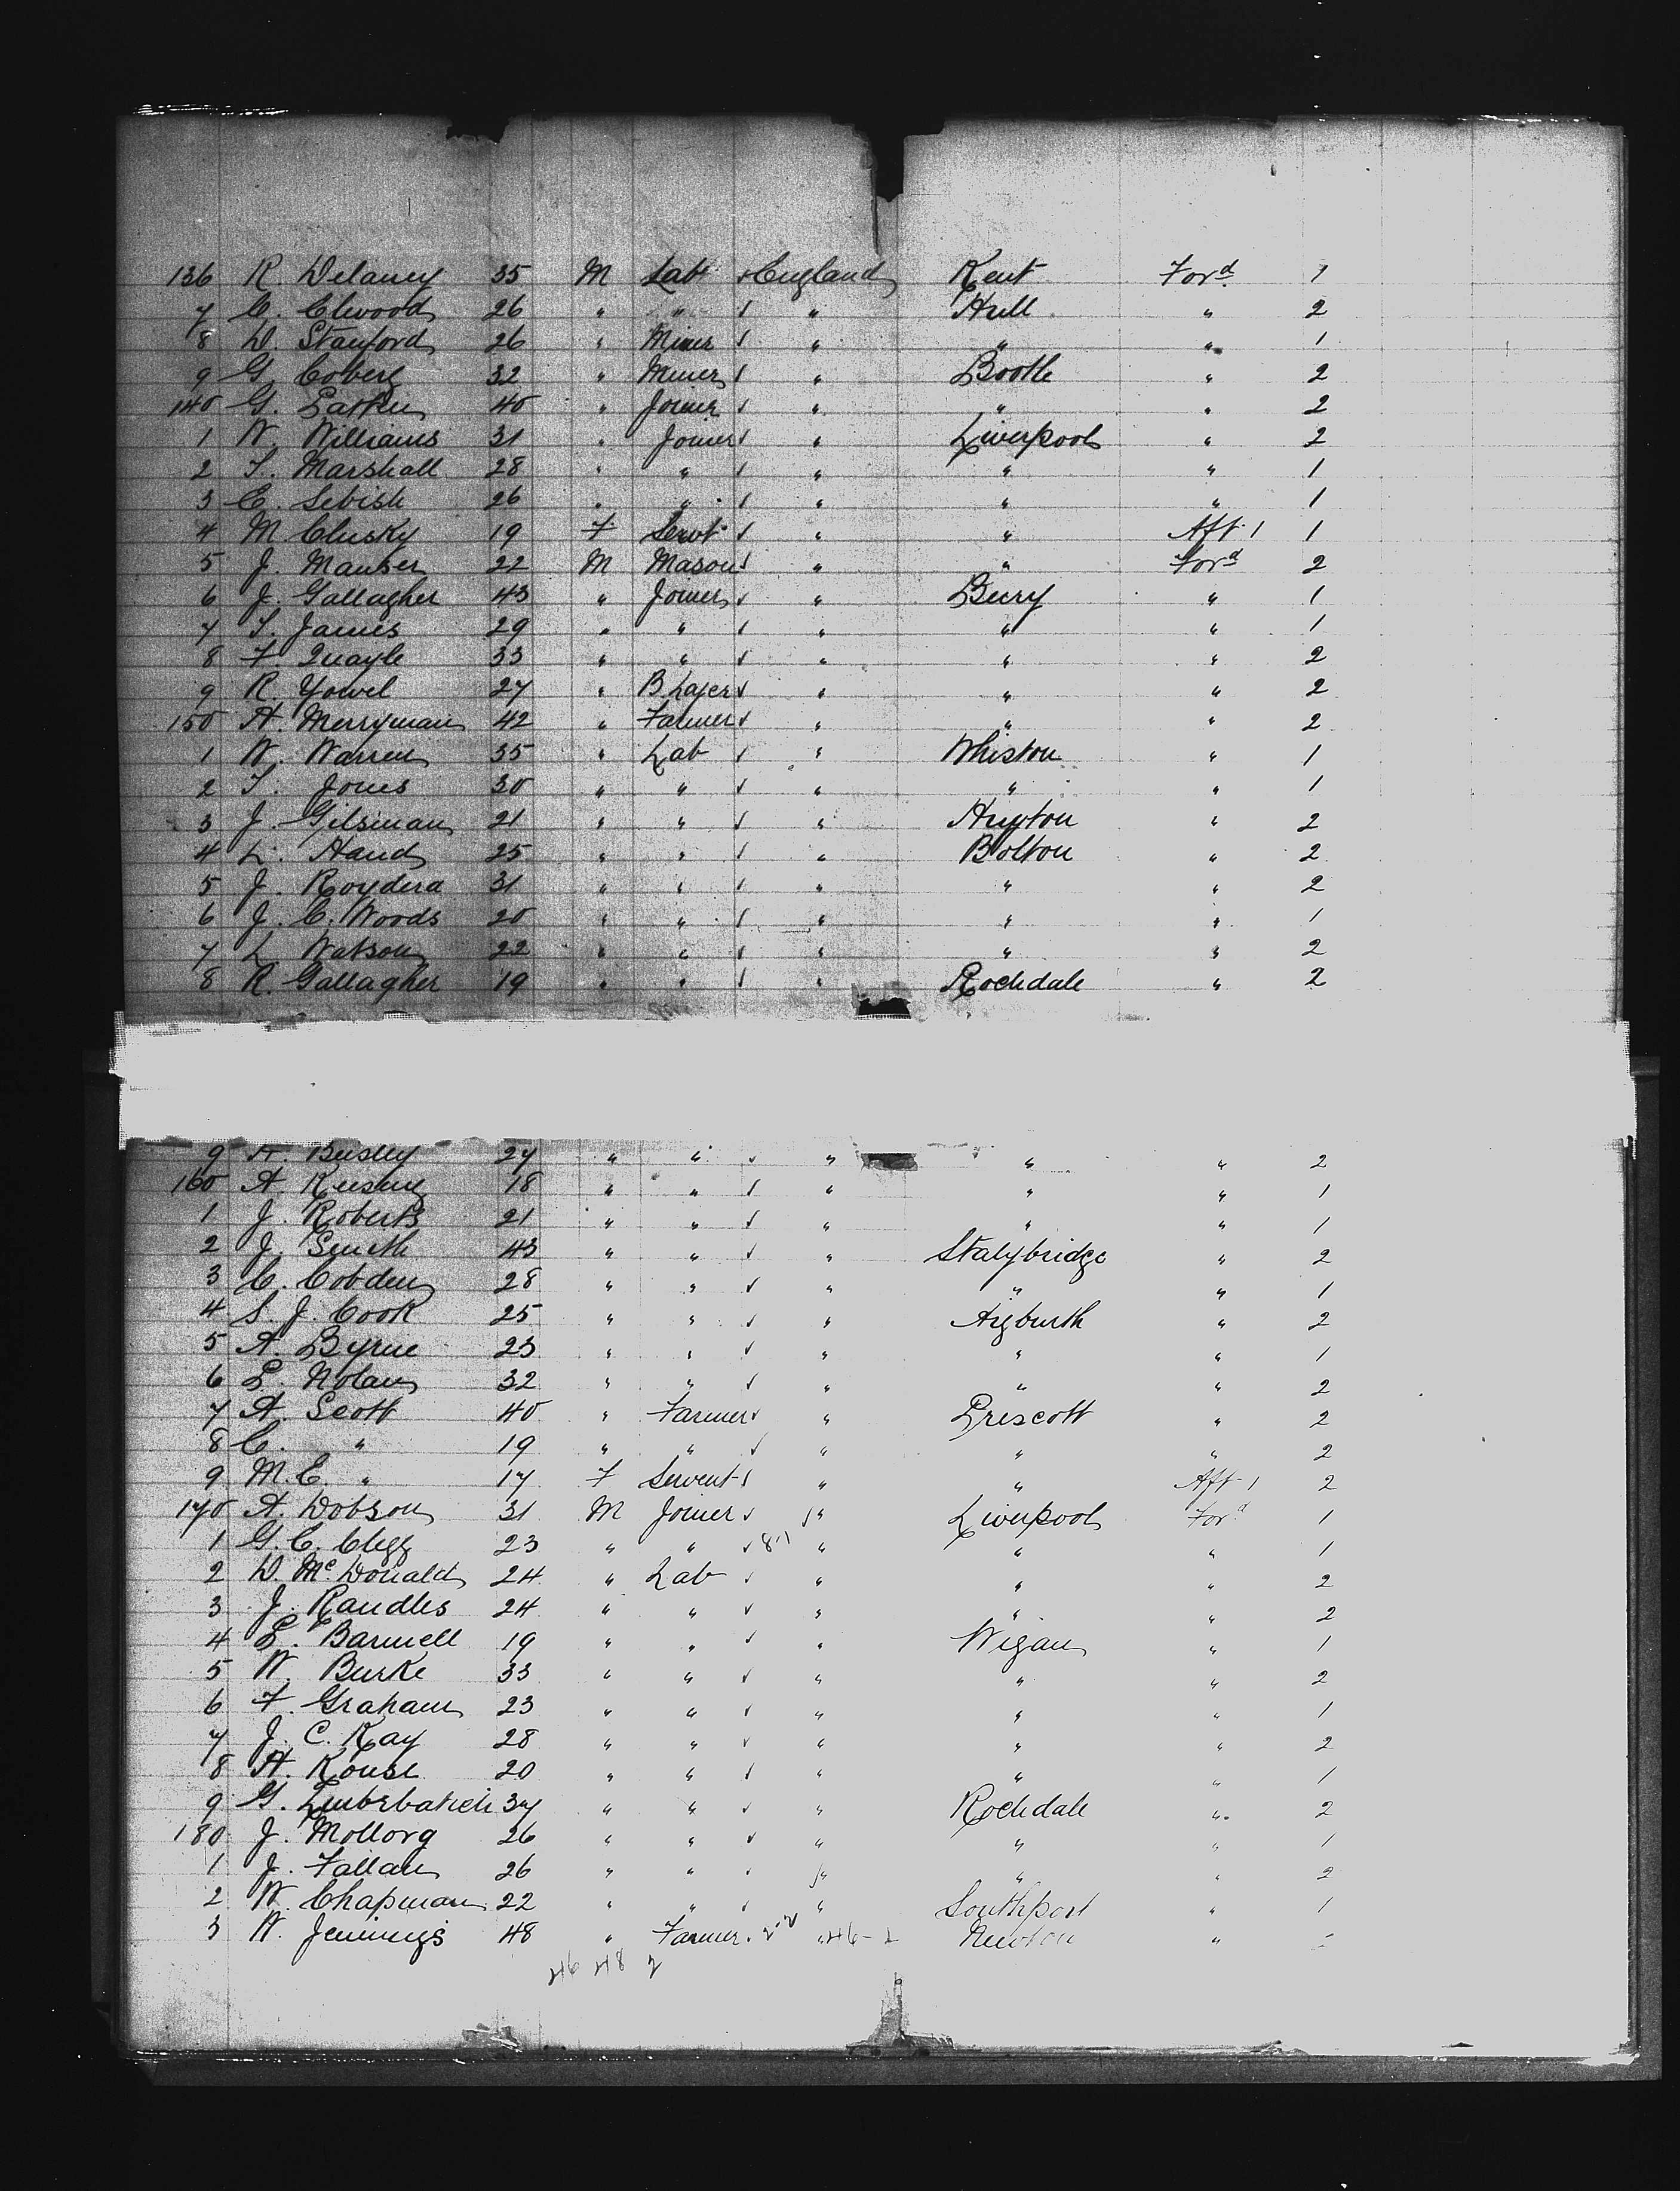 136 R. Delaney 35 M Lab England Kent Ford 1
7 C. Elwood 26 " " " Hull " 2
8 W. Stanford 26 " Miner " " " 1
9 G. Coberg 32 " Miner " Bootle " 2
140 G. 40 " Joiner " " " 2
1 W. Williams 31 " Joiner " Liverpool " 2
2 T. Marshall 28 " " " " " 1
3 C. 26 " " " " " 1
4 M Clusky 19 F Servt " " Aft 1 1
5 J. 22 M Mason " " Ford 2
6 J. Gallagher 43 " Joiner " Bury " 1
7 T. James 29 " " " " " 1
8 F. Quayle 33 " " " " " 2
9 R. Yowel 27 " B. Layer " " " 2
150 A. Merryman 42 " Farmer " " " 2
1 W. Warren 35 " Lab " Whiston " 1
2 T. Jones 30 " " " " " 1
3 J. Gilsman 21 " " " Huyton " 2
4 L. Hand 25 " " " Bolton " 2
5 J. 31 " " " " " 2
6 J. C. Woods 20 " " " " " 1
7 L Watson 22 " " " " " 2
8 R. Gallagher 19 " " " Rochdale " 2
9 27 " " " " " 2
160 A. 18 " " " " " 1
1 J. Roberts 21 " " " " " 1
2 J. Smith 43 " " " Stalybridge " 2
3 C. Cobden 28 " " " " " 1
4 S. J. Cook 25 " " " Aigburth " 2
5 A. Byrne 23 " " " " " 1
6 Nolan 32 " " " " " 2
7 A. Scott 40 " Farmer " Prescott " 2
8 C. " 19 " " " " " 2
9 M. E. " 17 F Servent " " Aft 1 2
170 A. Dobson 31 M Joiner " Liverpool Ford 1
1 G. C. Clegg 23 " " " " " 1
2 D. Mc Donald 24 " Lab " " " 2
3 J. Randles 24 " " " " " 2
4 Barnell 19 " " " Wigan " 1
5 W. Burke 33 " " " " " 2
6 F. Graham 23 " " " " " 1
7 J. C. Kay 28 " " " " " 2
8 A. Rouse 20 " " " " " 1
9 G. 37 " " " Rochdale " 2
180 J. Mollorg 26 " " " " " 1
1 J. Fallan 26 " " " " " 2
2 W. Chapman 22 " " " Southport " 1
3 W. Jennings 48 " Farmer " Newton "
46 48 2